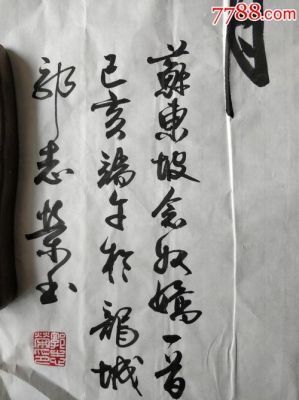 7788.com
月
蘇東坡念奴嬌一首
己亥端午於龍城
郭志榮书